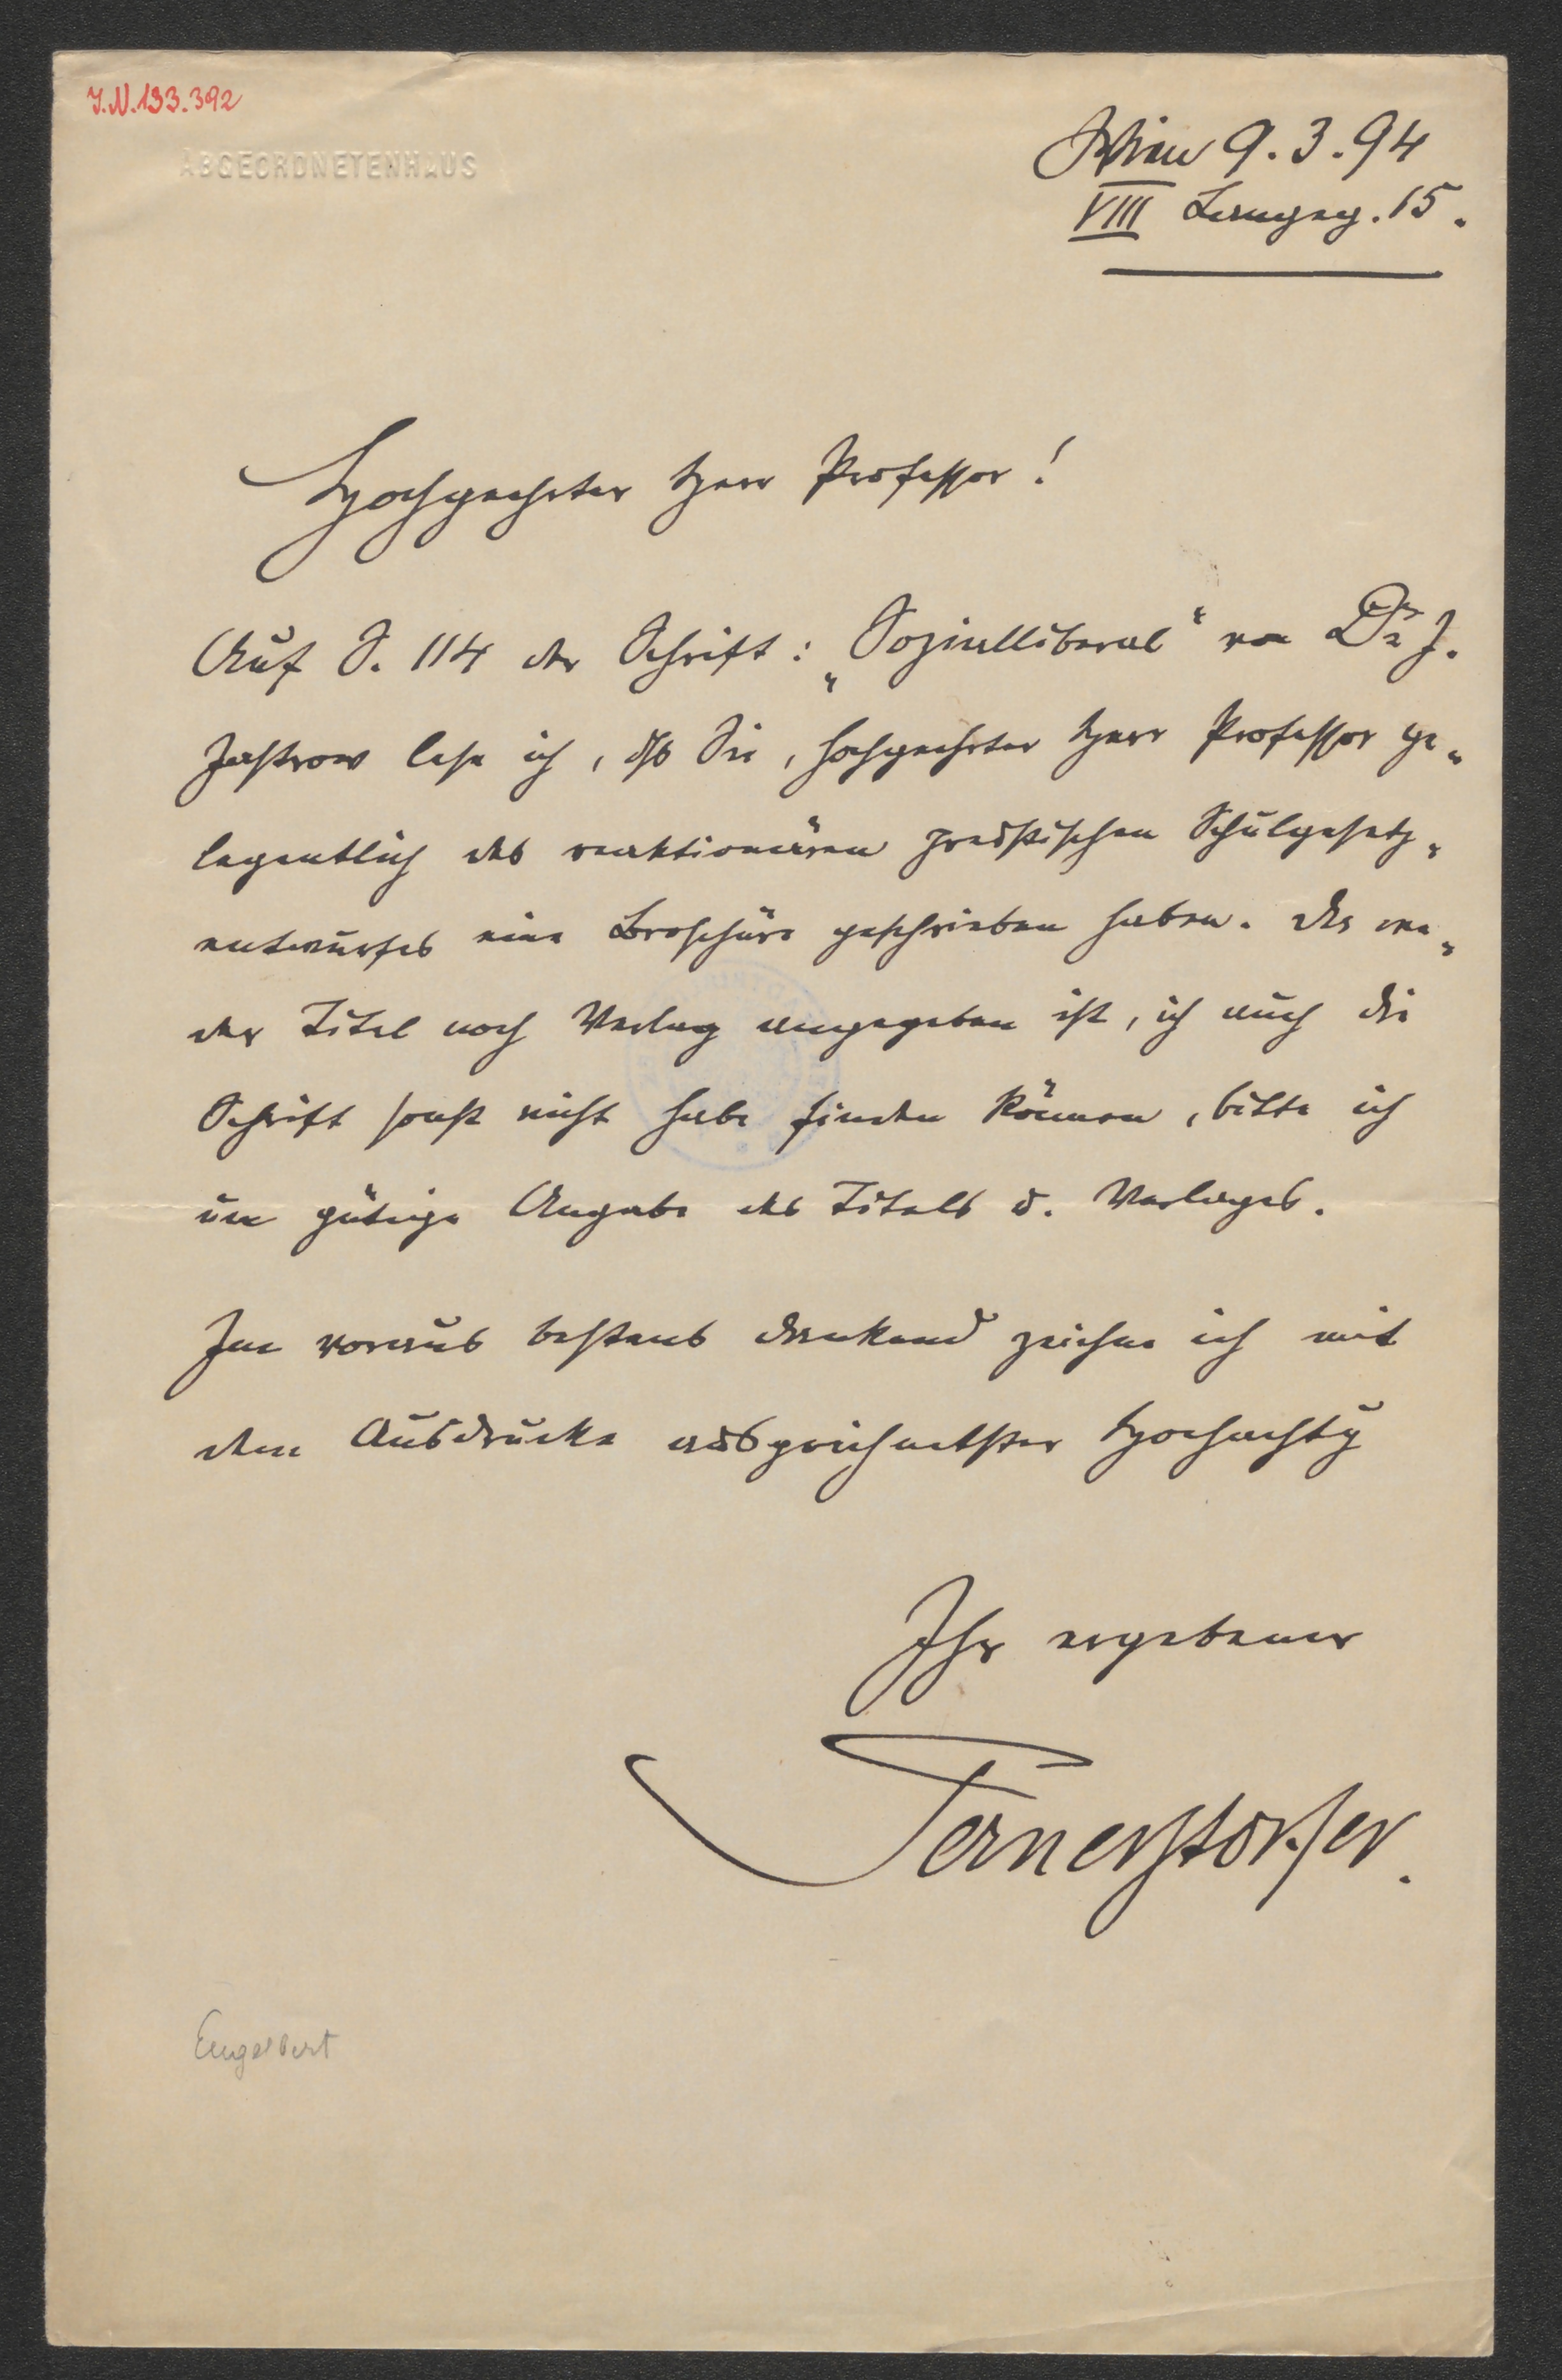 J.N.133.392
ABGEORDNETENHAUS
Wien 9.3.94
VIII Langeg. 15.
Hochgeehrter Herr Professor!
Auf S. 114 der Schrift: „Sozialliberal“ von Dr J.
Jastrow lese ich, dß Sie, hochgeehrter Herr Professor ge-
legentlich des reaktionären preußischen Schulgesetz-
entwurfes eine Broschüre geschrieben haben. Da we-
der Titel noch Verlag angegeben ist, ich auch die
Schrift sonst nicht habe finden können, bitte ich
um gütige Angabe des Titels u. Verlages.
Im voraus bestens dankend zeichne ich mit
dem Ausdrucke ausgezeichnetster Hochachtg
Ihr ergebener
Pernerstorfer.
Engelbert